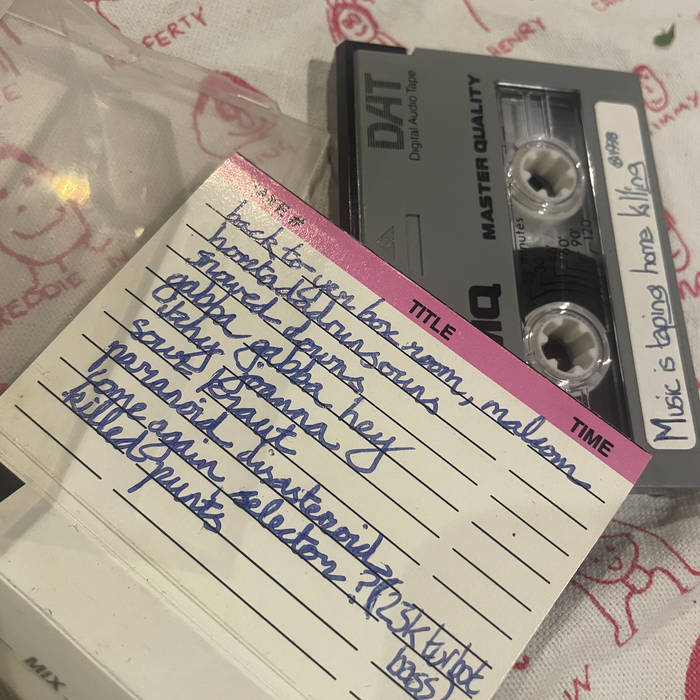 FERTY
HENRY
JIMMY
FREDDIE
DAT
Digital Audio Tape
MASTER QUALITY
minutes
90'
120'
Music is taping home killing
@1998
TITLE
TIME
back to your box room, malcom
snowed downs
gabba gabba hey
itchy joanna
sour kraut
paranoid disasteroid
come again selector? (23k turbot bass)
killed spurts
MIX